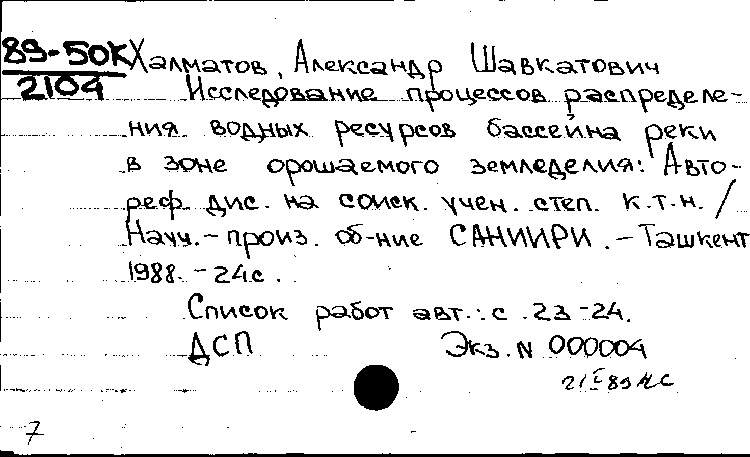 89-50К Халматов, Александр Шавкатович
2104 Исследование процессов распределе-
ния водных ресурсов бассейна реки
в зоне орошаемого земледелия: Авто-
реф. дис. на соиск. учен. степ. к.т.н. /
Науч.-произ. об-ние САНИИРИ. - Ташкент
1988. - 24с.
Список работ авт.: с. 23-24.
ДСП Экз. N 000004
21 I 89 МС
7